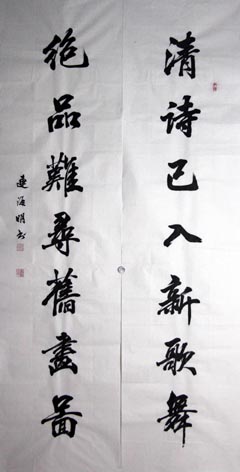 清詩已入新歌舞
絶品難尋舊畫圖
連海明书